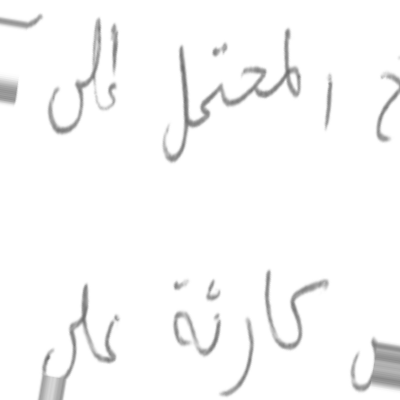 المحتمل إلى
كارثة على